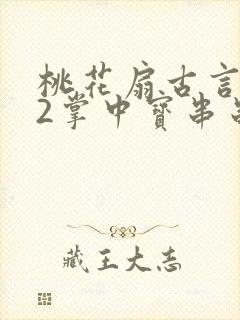 桃花扇古言
2掌中寳串
藏王大志